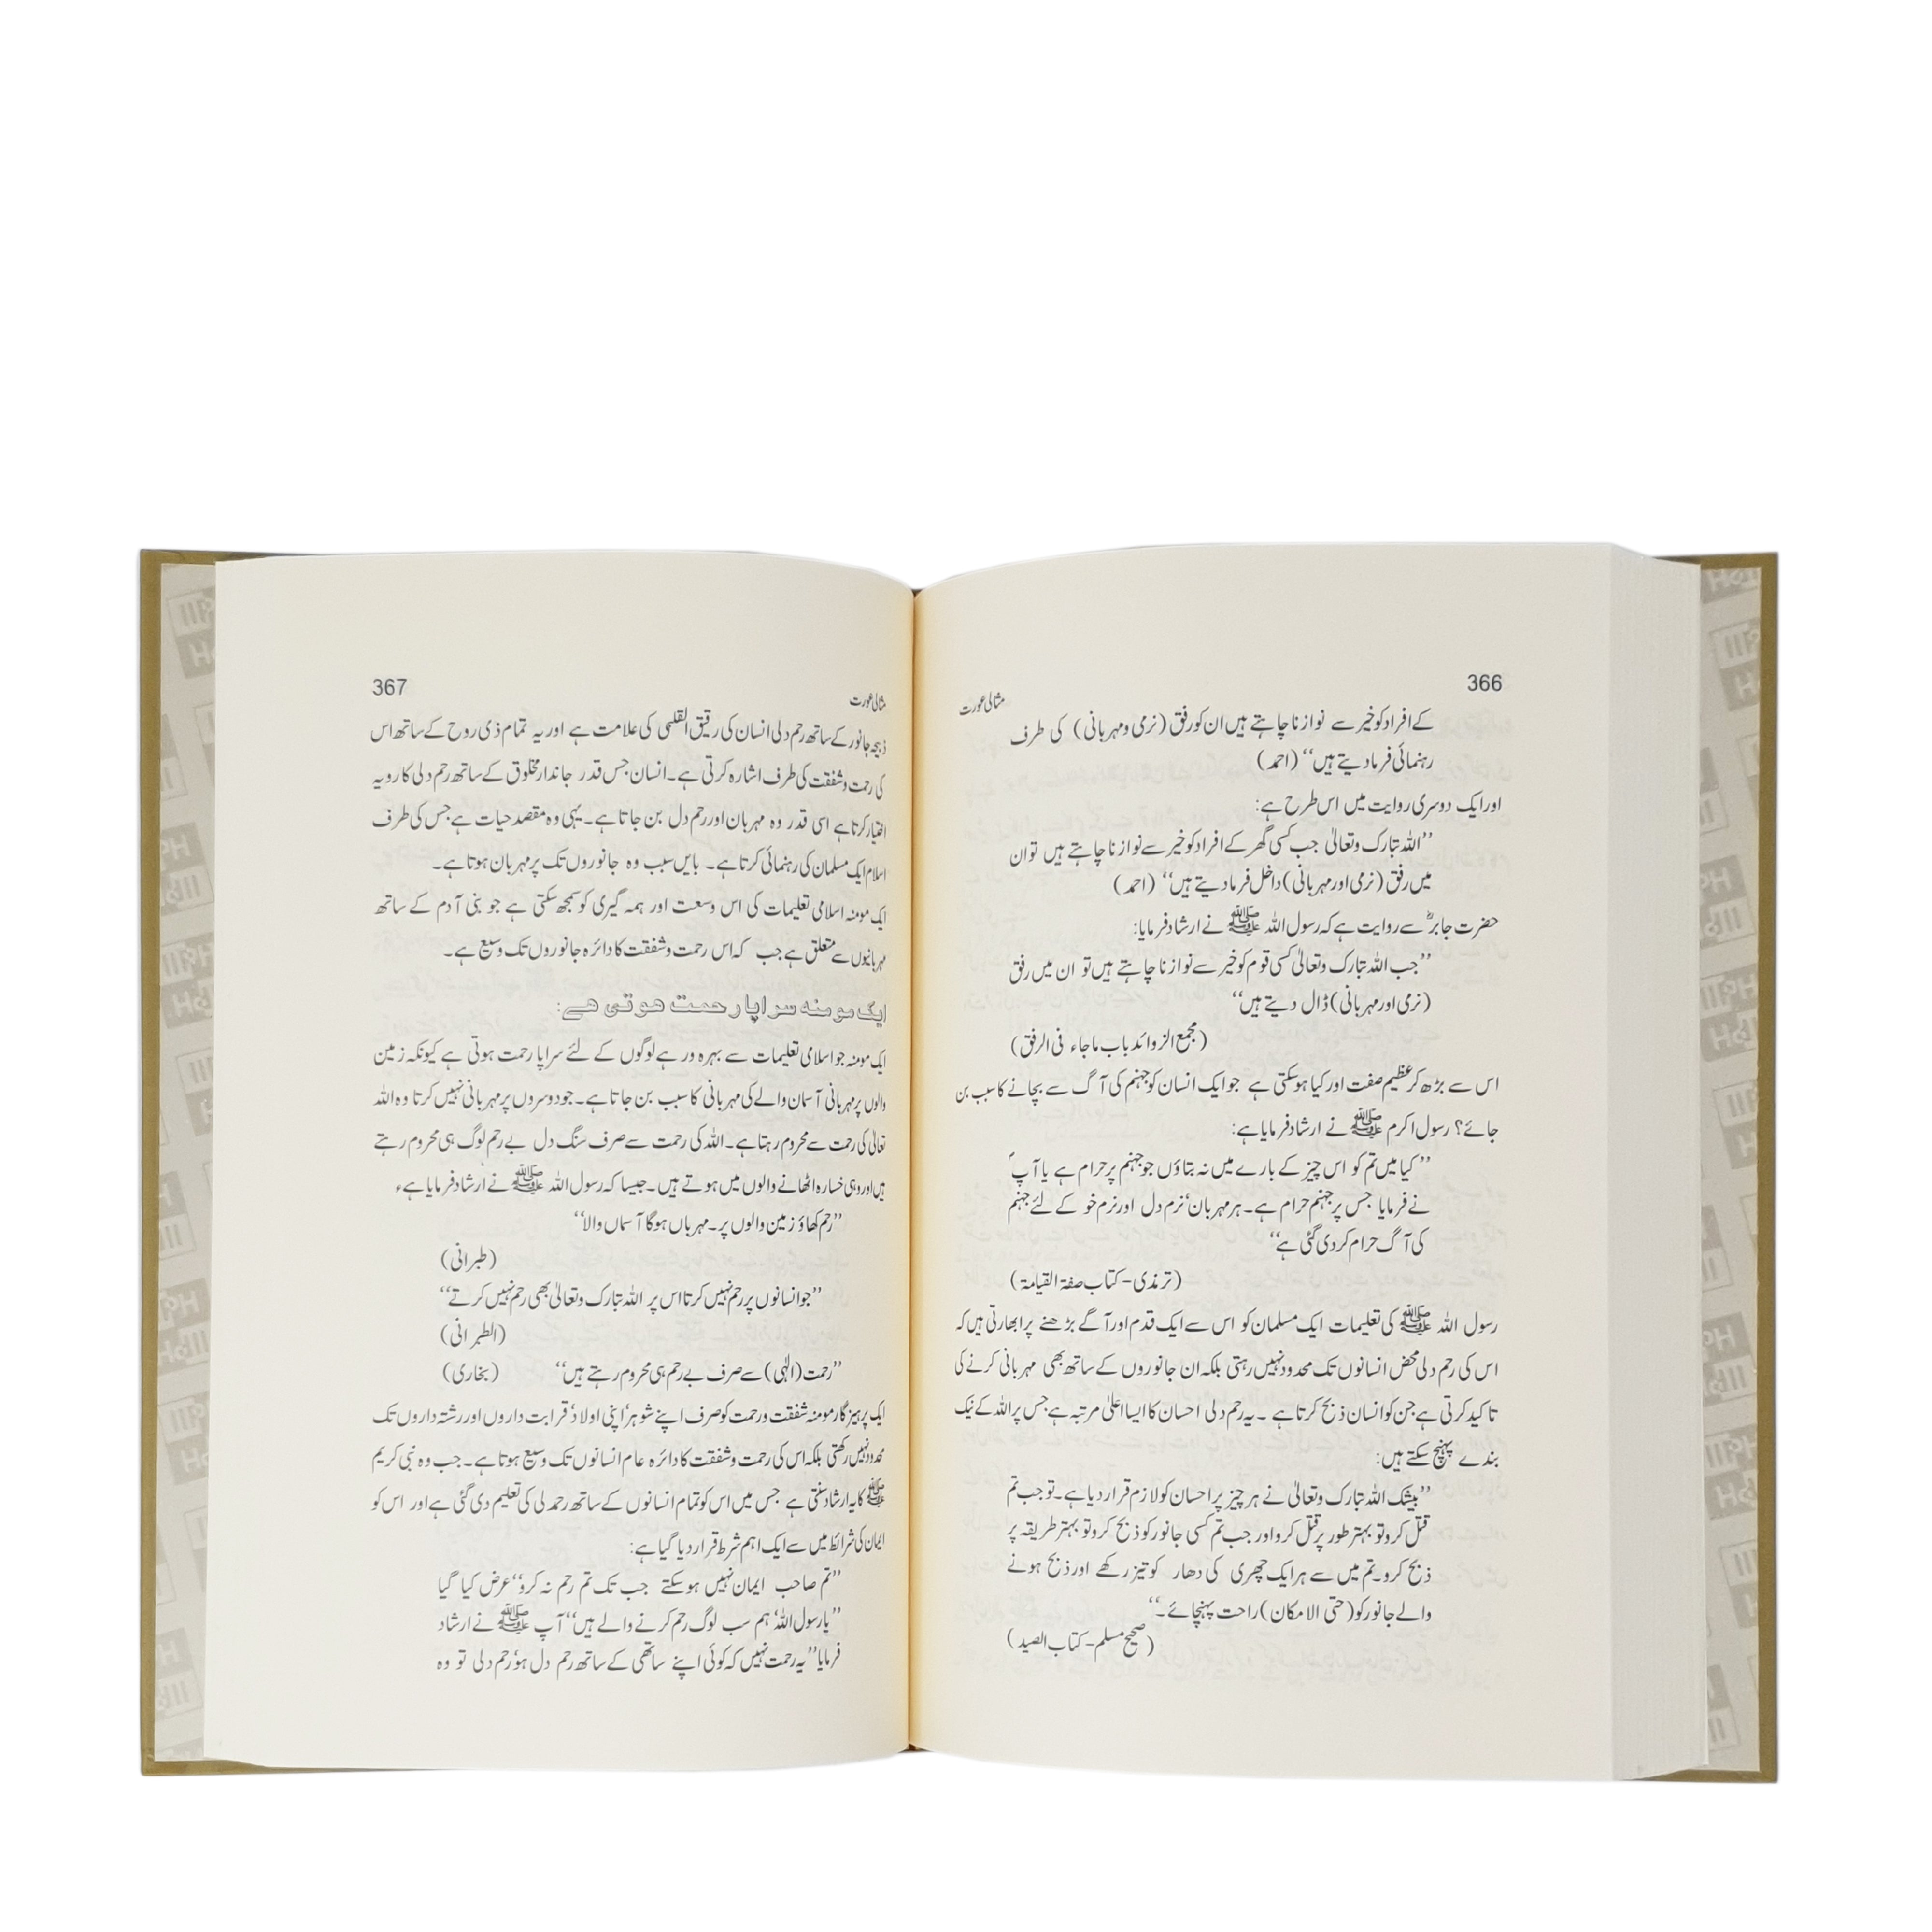 366
مثالی عورت
کے افراد کو خیر سے نوازنا چاہتے ہیں ان کو رفق (نرمی و مہربانی) کی طرف
رہنمائی فرما دیتے ہیں‘‘ (احمد)
اور ایک دوسری روایت میں اس طرح ہے:
’’اللہ تبارک وتعالیٰ جب کسی گھر کے افراد کو خیر سے نوازنا چاہتے ہیں تو ان
میں رفق (نرمی اور مہربانی) داخل فرما دیتے ہیں‘‘ (احمد)
حضرت جابرؓ سے روایت ہے کہ رسول اللہ ﷺ نے ارشاد فرمایا:
’’جب اللہ تبارک وتعالیٰ کسی قوم کو خیر سے نوازنا چاہتے ہیں تو ان میں رفق
(نرمی اور مہربانی) ڈال دیتے ہیں‘‘
(مجمع الزوائد باب ماجاء فی الرفق)
اس سے بڑھ کر عظیم صفت اور کیا ہوسکتی ہے جو ایک انسان کو جہنم کی آگ سے بچانے کا سبب بن
جائے؟ رسول اکرم ﷺ نے ارشاد فرمایا ہے:
’’کیا میں تم کو اس چیز کے بارے میں نہ بتاؤں جو جہنم پر حرام ہے یا آپؐ
نے فرمایا جس پر جہنم حرام ہے۔ ہر مہربان‘ نرم دل اور نرم خو کے لئے جہنم
کی آگ حرام کر دی گئی ہے‘‘
(ترمذی-کتاب صفۃ القیامۃ)
رسول اللہ ﷺ کی تعلیمات ایک مسلمان کو اس سے ایک قدم اور آگے بڑھنے پر ابھارتی ہیں کہ
اس کی رحم دلی محض انسانوں تک محدود نہیں رہتی بلکہ ان جانوروں کے ساتھ بھی مہربانی کرنے کی
تاکید کرتی ہے جن کو انسان ذبح کرتا ہے۔ یہ رحم دلی احسان کا ایسا اعلیٰ مرتبہ ہے جس پر اللہ کے نیک
بندے پہنچ سکتے ہیں:
’’بیشک اللہ تبارک وتعالیٰ نے ہر چیز پر احسان کو لازم قرار دیا ہے۔ تو جب تم
قتل کرو تو بہتر طور پر قتل کرو اور جب تم کسی جانور کو ذبح کرو تو بہتر طریقہ پر
ذبح کرو۔ تم میں سے ہر ایک چھری کی دھار کو تیز رکھے اور ذبح ہونے
والے جانور کو (حتی الامکان) راحت پہنچائے۔‘‘
(صحیح مسلم-کتاب الصید)
367
مثالی عورت
ذبیحہ جانور کے ساتھ رحم دلی انسان کی رقیق القلبی کی علامت ہے اور یہ تمام ذی روح کے ساتھ اس
کی رحمت و شفقت کی طرف اشارہ کرتی ہے۔ انسان جس قدر جاندار مخلوق کے ساتھ رحم دلی کا رویہ
اختیار کرتا ہے اسی قدر وہ مہربان اور رحم دل بن جاتا ہے۔ یہی وہ مقصد حیات ہے جس کی طرف
اسلام ایک مسلمان کی رہنمائی کرتا ہے۔ بایں سبب وہ جانوروں تک پر مہربان ہوتا ہے۔
ایک مومنہ اسلامی تعلیمات کی اس وسعت اور ہمہ گیری کو سمجھ سکتی ہے جو بنی آدم کے ساتھ
مہربانیوں سے متعلق ہے جب کہ اس رحمت و شفقت کا دائرہ جانوروں تک وسیع ہے۔
ایک مومنہ سراپا رحمت ہوتی ہے:
ایک مومنہ جو اسلامی تعلیمات سے بہرہ ور ہے لوگوں کے لئے سراپا رحمت ہوتی ہے کیونکہ زمین
والوں پر مہربانی آسمان والے کی مہربانی کا سبب بن جاتا ہے۔ جو دوسروں پر مہربانی نہیں کرتا وہ اللہ
تعالٰی کی رحمت سے محروم رہتا ہے۔ اللہ کی رحمت سے صرف سنگ دل بے رحم لوگ ہی محروم رہتے
ہیں اور وہی خسارہ اٹھانے والوں میں ہوتے ہیں۔ جیسا کہ رسول اللہ ﷺ نے ارشاد فرمایا ہے،
’’رحم کھاؤ زمین والوں پر۔ مہرباں ہوگا آسماں والا‘‘
(طبرانی)
’’جو انسانوں پر رحم نہیں کرتا اس پر اللہ تبارک وتعالیٰ بھی رحم نہیں کرتے‘‘
(الطبرانی)
’’رحمت (الٰہی) سے صرف بے رحم ہی محروم رہتے ہیں‘‘ (بخاری)
ایک پرہیزگار مومنہ شفقت و رحمت کو صرف اپنے شوہر‘ اپنی اولاد‘ قرابت داروں اور رشتہ داروں تک
محدود نہیں رکھتی بلکہ اس کی رحمت و شفقت کا دائرہ عام انسانوں تک وسیع ہوتا ہے۔ جب وہ نبی کریم
ﷺ کا یہ ارشاد سنتی ہے جس میں اس کو تمام انسانوں کے ساتھ رحمدلی کی تعلیم دی گئی ہے اور اس کو
ایمان کی شرائط میں سے ایک اہم شرط قرار دیا گیا ہے:
’’تم صاحب ایمان نہیں ہوسکتے جب تک تم رحم نہ کرو‘‘ عرض کیا گیا
’’یا رسول اللہ‘ ہم سب لوگ رحم کرنے والے ہیں‘‘ آپ ﷺ نے ارشاد
فرمایا ’’یہ رحمت نہیں کہ کوئی اپنے ساتھی کے ساتھ رحم دل ہو‘ رحم دلی تو وہ